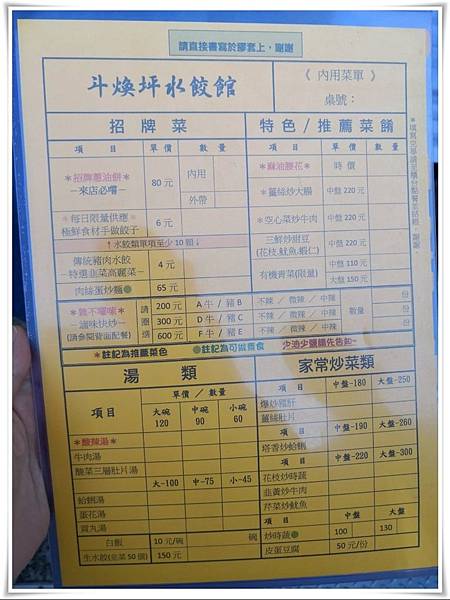 請直接書寫於膠套上，謝謝
斗煥坪水餃館
《 內用菜單 》
桌號：
招牌菜
特色/推薦菜餚
項 目 單 價 數 量
項 目 單 價 數 量
＊招牌蔥油餅＊
－來店必嚐－
80 元
內用
外帶
＊每日限量供應＊
極鮮食材手做餃子
6 元
↑水餃類單項至少 10 顆↓
傳統豬肉水餃
－特選韭菜高麗菜－
4 元
肉絲蛋炒麵
65 元
＊麻油腰花＊ 時 價
＊薑絲炒大腸 中盤 220 元
＊空心菜炒牛肉 中盤 220 元
三鮮炒甜豆
(花枝.魷魚.蝦仁)
中盤 220 元
有機青菜(限量)
中盤 110 元
大盤 150 元
＊雜不囉嗦＊
－滷味快炒－
(請參閱背面配餐)
請圈選
200 元 A 牛 / 豬 B 不辣 / 微辣 / 中辣 份
300 元 D 牛 / 豬 C 不辣 / 微辣 / 中辣 數量 份
600 元 F 牛 / 豬 E 不辣 / 微辣 / 中辣 份
＊註記為推薦菜色
●註記為可做素食
少油少鹽請先告知~
湯 類
單價 / 數量
項目
大碗 120
中碗 90
小碗 60
＊酸辣湯＊
牛肉湯
酸菜三層肚片湯
大-100 中-75 小-45
蛤蜊湯
蛋花湯
貢丸湯
白飯 10 元/碗 碗
生水餃(韭菜 50 個) 150 元
家常炒菜類
項 目 中盤-180 大盤-250
爆炒豬肝
薑絲肚片
項 目 中盤-190 大盤-260
塔香炒蛤蜊
項 目 中盤-220 大盤-300
花枝炒時蔬
韭黃炒牛肉
芹菜炒魷魚
項 目 中盤 大盤
炒時蔬● 100 130
皮蛋豆腐 50 元/份